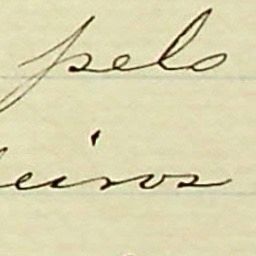 pelo
eiros